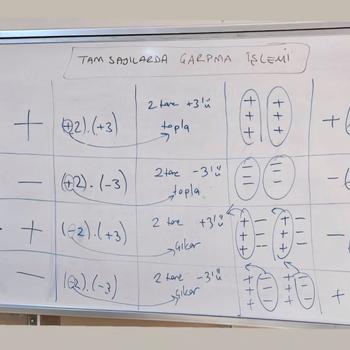 TAM SAYILARDA ÇARPMA İŞLEMİ
+ (+2).(+3) 2 tane +3'ü topla + + + + + + +
- (+2).(-3) 2 tane -3'ü topla - - - - - - -
- + (-2).(+3) 2 tane +3'ü çıkar + + + - - - + + + - - - -
- (-2).(-3) 2 tane -3'ü çıkar + + + - - - + + + - - - +